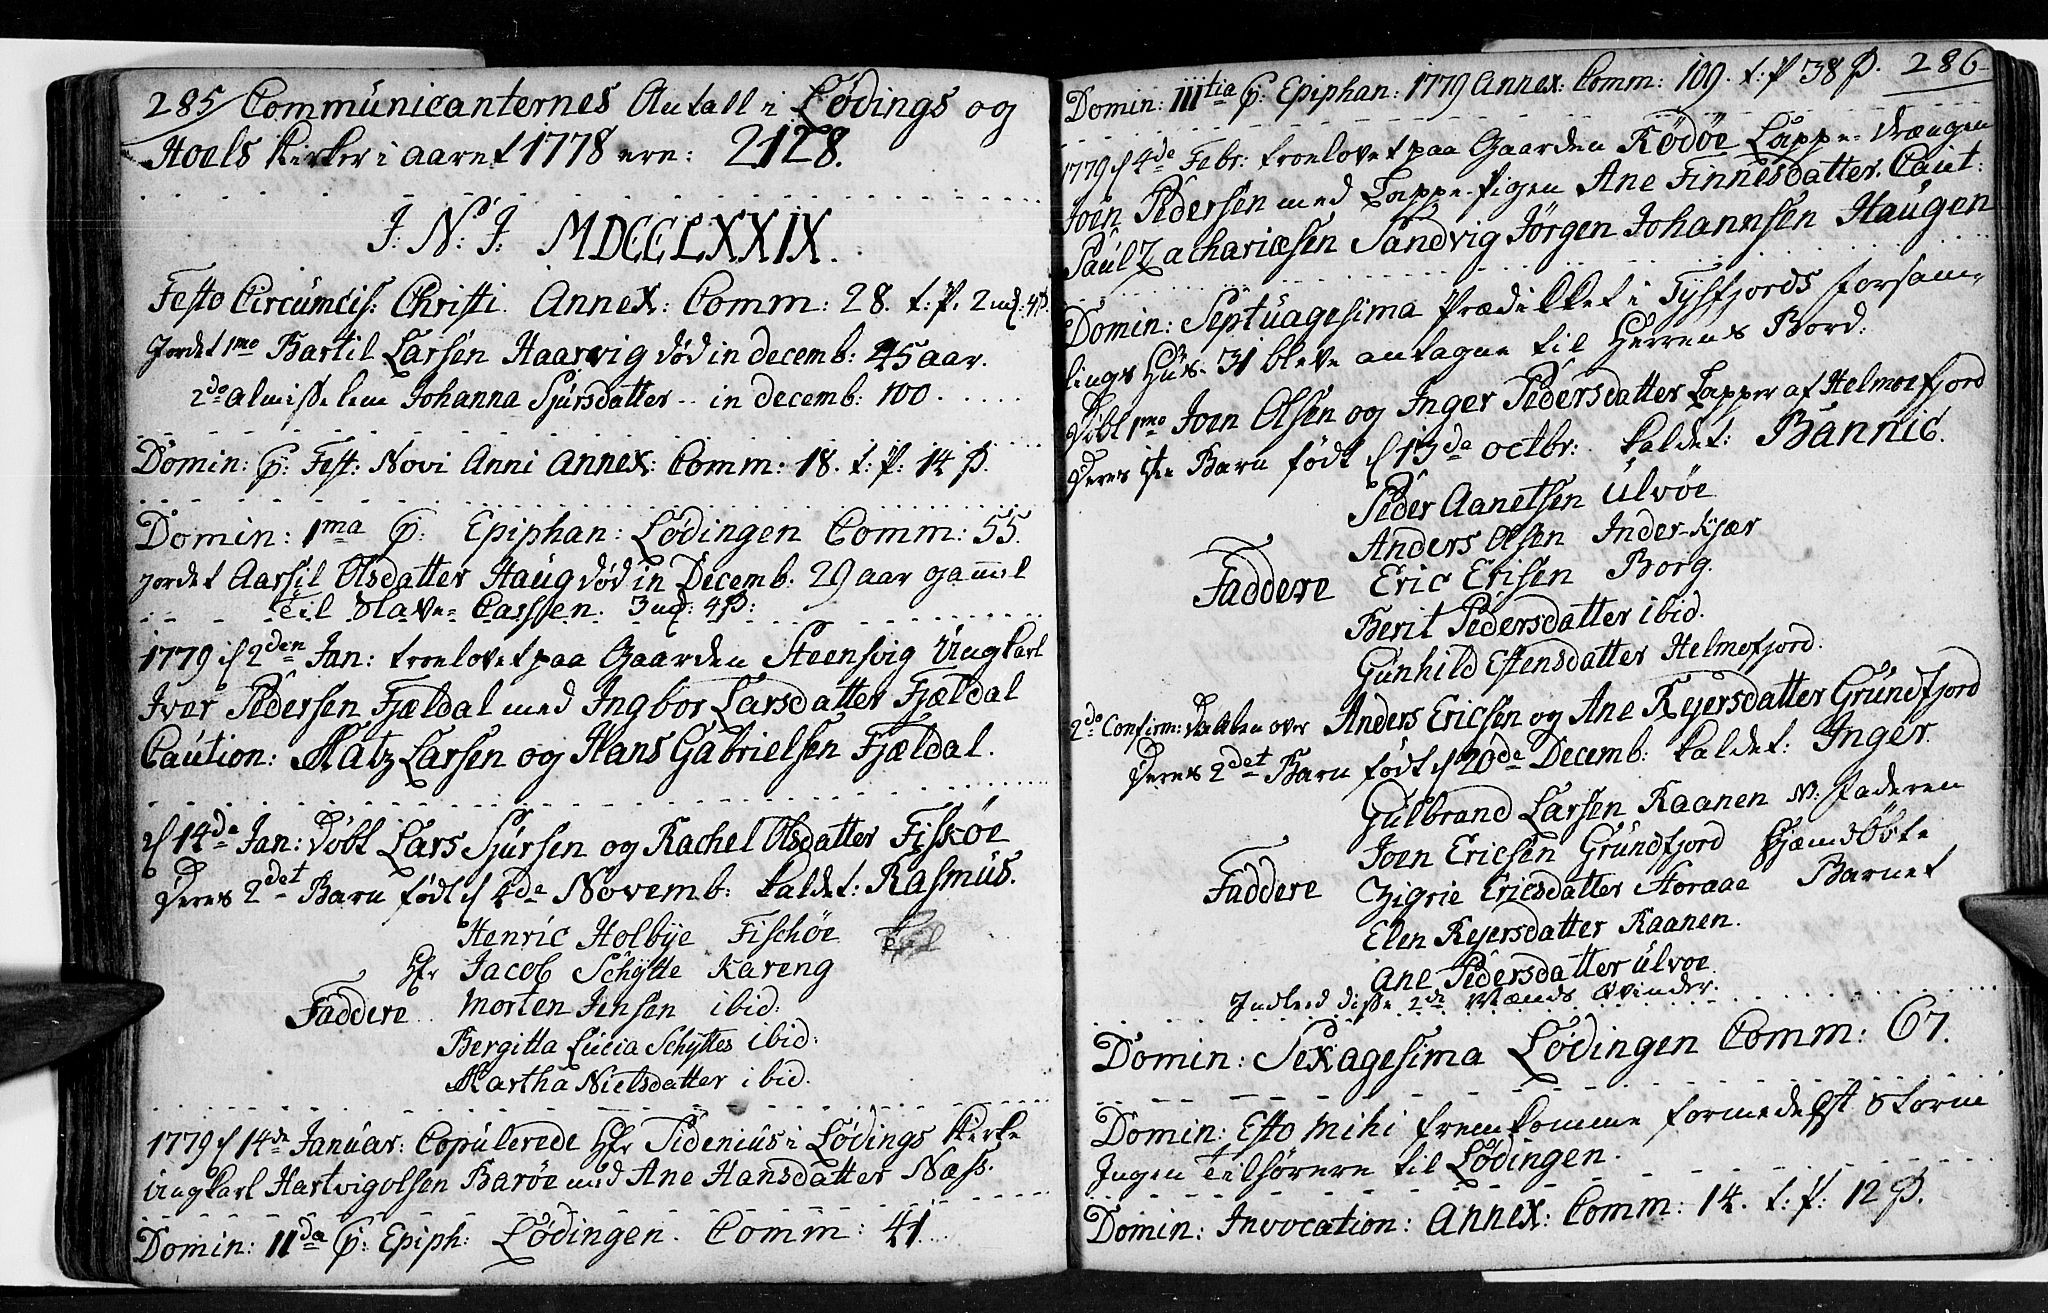 285/ Communicanternes Antall i Lødings og
Hoels Kirker i aaret 1778 ere: 2128.
J: N: J: MDCCLXXIX.
Festo Circumcis: Christi. Annex: Comm: 28. t: P. 2 mk: 4 ß.
Jordet 1mo Bartil Larsen Haarvig død in decemb: 45 aar.
2do almisselem Johanna Sjursdatter .. in decemb: 100.
Domin: p: Fest: Novi Anni Annex: Comm: 18. t: P: 14 ß.
Domin: 1ma p: Epiphan: Lødingen Comm: 55.
Jordet Aarsil Olsdatter Haug død in Decemb: 29 aar gamel
til Slave-Cassen. 3 mk: 4 ß:
1779 d 2den Jan: troelovet paa Gaarden Steensvig Ungkarl
Iver Pedersen Fjældal med Ingbor Larsdatter Fjældal
Caution: Matz Larsen og Hans Gabrielsen Fjældal.
d 14de Jan: Døbt Lars Sjursen og Rachel Olsdatter Fiskøe
Deres 2det Barn født d 4de Novemb: kaldet: Rasmus.
Henric Holbye Fischøe
Hr Jacob Schytte Kareng
Faddere Morten Jensen ibid:
Bergitta Lucia Schyttes ibid:
Martha Nielsdatter ibid.
1779 d 14de Januar: Copulerede Hr Tidenius i Lødings Kirke
Ungkarl Hartvig Olsen Barøe med Ane Hansdatter Næss.
Domin: 11da p: Epiph: Lødingen. Comm: 41.
Domin: IIItia p: Epiphan: 1779 Annex: Comm: 109. t: P 38 ß. 286
1779 d 4de Febr: troelovet paa Gaarden Rødøe Lappe-Drængen
Joen Pedersen med Lappe-Pigen Ane Finnesdatter. Caut:
Paul Zachariæsen Sandvig Jørgen Johannsen Haugen
Domin: Septuagesima Prædikket i Tysfjords Forsam-
lings Hus. 31 bleve antagne til Herrens Bord.
Døbt 1mo Joen Olsen og Inger Pedersdatter Lapper af Helmoefjord
Deres 1ste Barn født d 13de octbr: kaldet: Bannic.
Peder Aanetsen Ulvøe
Anders Olsen Inder-Kjær
Faddere Eric Erisen Borg.
Berit Pedersdatter ibid.
Gunhild Estensdatter Helmofjord.
2do Confirm: Daaben over Anders Ericsen og Ane Rejersdatter Grundfjord
Deres 2det Barn født d 20de Decemb: kaldet: Inger.
Gulbrand Larsen Raanen N: Faderen
Joen Ericsen Grundfjord Hjemdøbte
Faddere Zigrie Ericsdatter Storaae Barnet
Elen Rejersdatter Raanen.
Ane Pedersdatter Ulvøe.
Indleed disse 2de Mænds Qvinder.
Domin: Sexagesima Lødingen Comm: 67.
Domin: Esto Mihi fremkomme formedelst Storm
Ingen Tilhørere til Lødingen.
Domin: Invocation: Annex: Comm: 14. t: P: 12 ß.